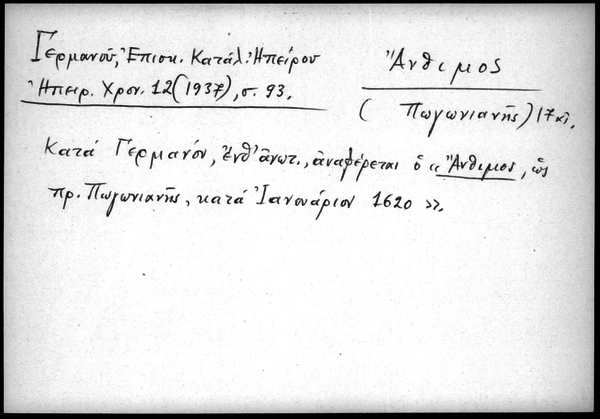 Γερμανοῦ, Ἐπισκ. Κατάλ. Ἠπείρου
Ἠπειρ. Χρον. 12 (1937), σ. 93.
Ἄνθιμος
(Πωγωνιανῆς) 17 αἰ.
Κατά Γερμανόν, ἔνθ' ἀνωτ., ἀναφέρεται ὁ «Ἄνθιμος, ὡς
πρ. Πωγωνιανῆς, κατά Ἰανουάριον 1620».